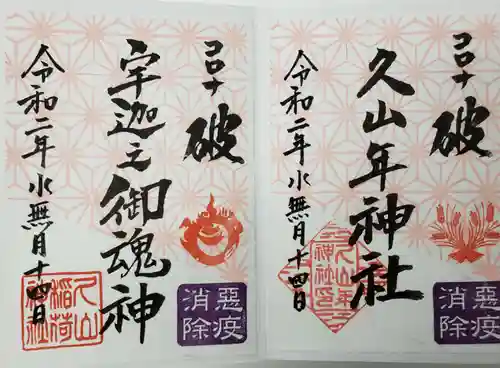 コロナ
破
久山年神社
令和二年水無月十四日
久山年
神社
悪疫
消除
コロナ
破
宇迦之御魂神
令和二年水無月十四日
久山
稲荷
神社
惡疫
消除